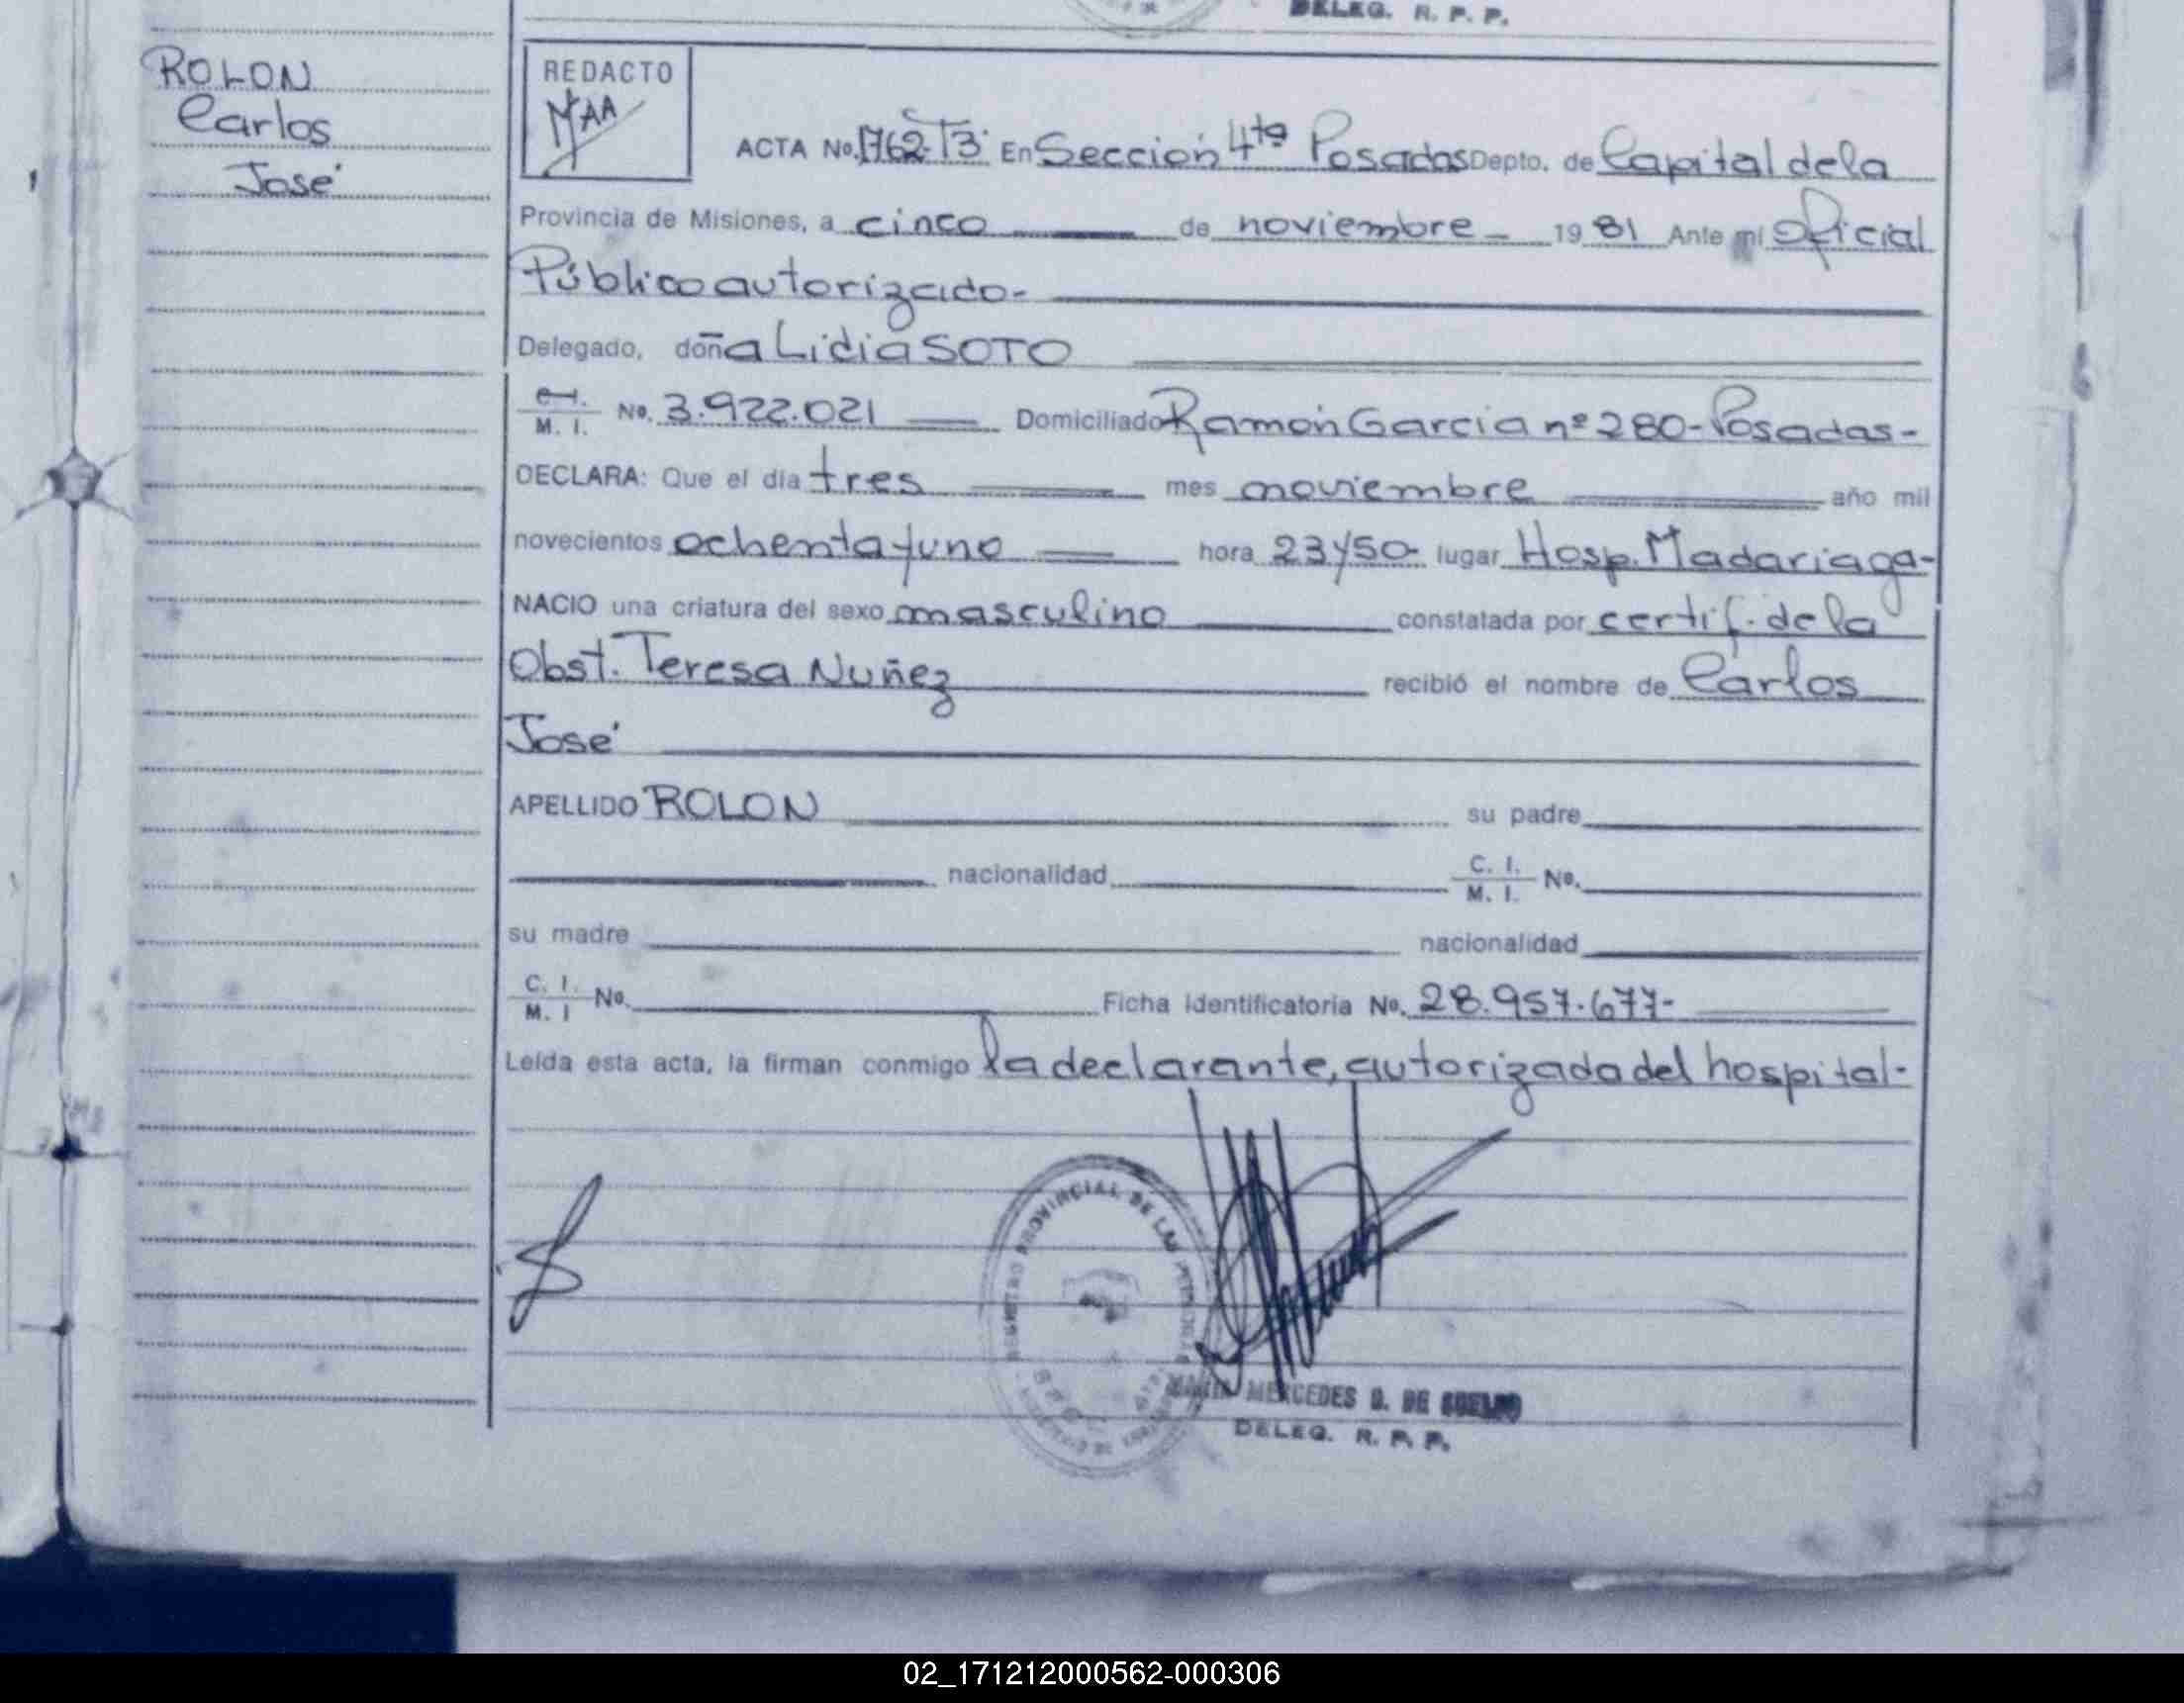 DELEG. R. P. P.
ROLON
Carlos
José
REDACTO
ACTA No. 1762-T3- En Sección 4ta Posadas Depto. de Capital de la
Provincia de Misiones, a cinco de noviembre 19 81 Ante mí Oficial
Público autorizado-
Delegado, doña Lidia SOTO
C. I. M. I. No. 3.922.021 Domiciliado Ramón Garcia nº 280-Posadas-
DECLARA: Que el día tres mes noviembre año mil
novecientos ochenta y uno hora 23 y 50- lugar Hosp. Madariaga-
NACIO una criatura del sexo masculino constatada por certif. de la
Obst. Teresa Nuñez recibió el nombre de Carlos
José
APELLIDO ROLON su padre
nacionalidad C. I. M. I. No.
su madre nacionalidad
C. I. M. I No. Ficha Identificatoria No. 28.957.677-
Leída esta acta, la firman conmigo la declarante, autorizada del hospital-
REGISTRO PROVINCIAL DE LAS
MERCEDES G. DE
DELEG. R. P. P.
02_171212000562-000306